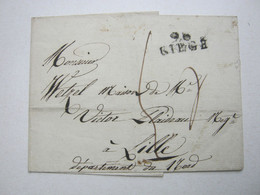 96
LIEGE
Monsieur
Wetzel maison de Mr
Victor
à Lille
département du Nord